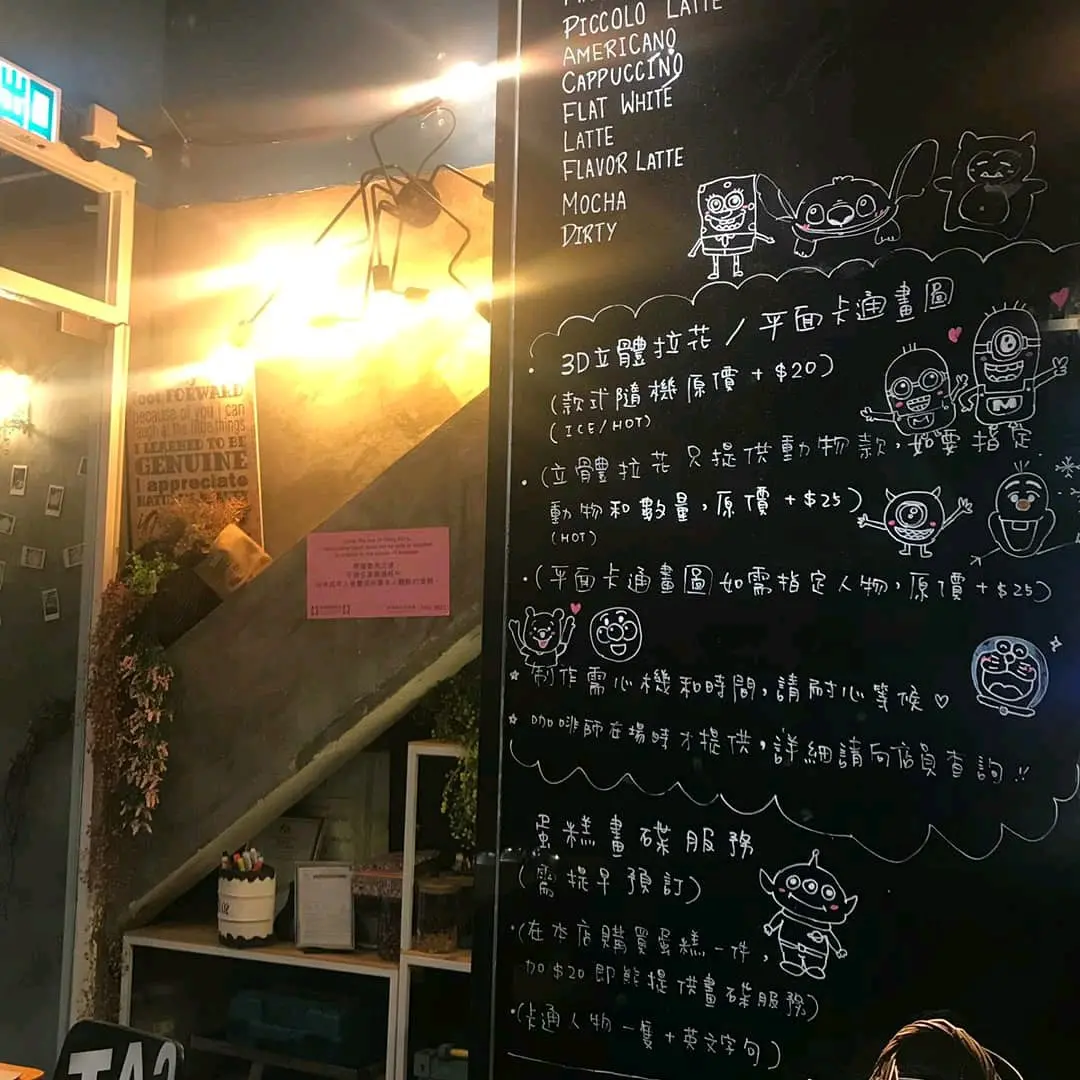 PICCOLO LATTE
AMERICANO
CAPPUCCINO
FLAT WHITE
LATTE
FLAVOR LATTE
MOCHA
DIRTY
• 3D立體拉花 / 平面卡通畫圖
(款式隨機原價 + $20)
(ICE/HOT)
• (立體拉花只提供動物款, 如要指定
動物和數量, 原價 + $25)
(HOT)
• (平面卡通畫圖如需指定人物, 原價 + $25)
☆ 制作需心機和時間, 請耐心等候 ♡
☆ 咖啡師在場時才提供, 詳細請向店員查詢!!
蛋糕畫碟服務
(需提早預訂)
• (在本店購買蛋糕一件,
加$20即能提供畫碟服務)
• (卡通人物一隻 + 英文字句)
M
FORWARD
because of you I can
I LEARNED TO BE
GENUINE
I appreciate